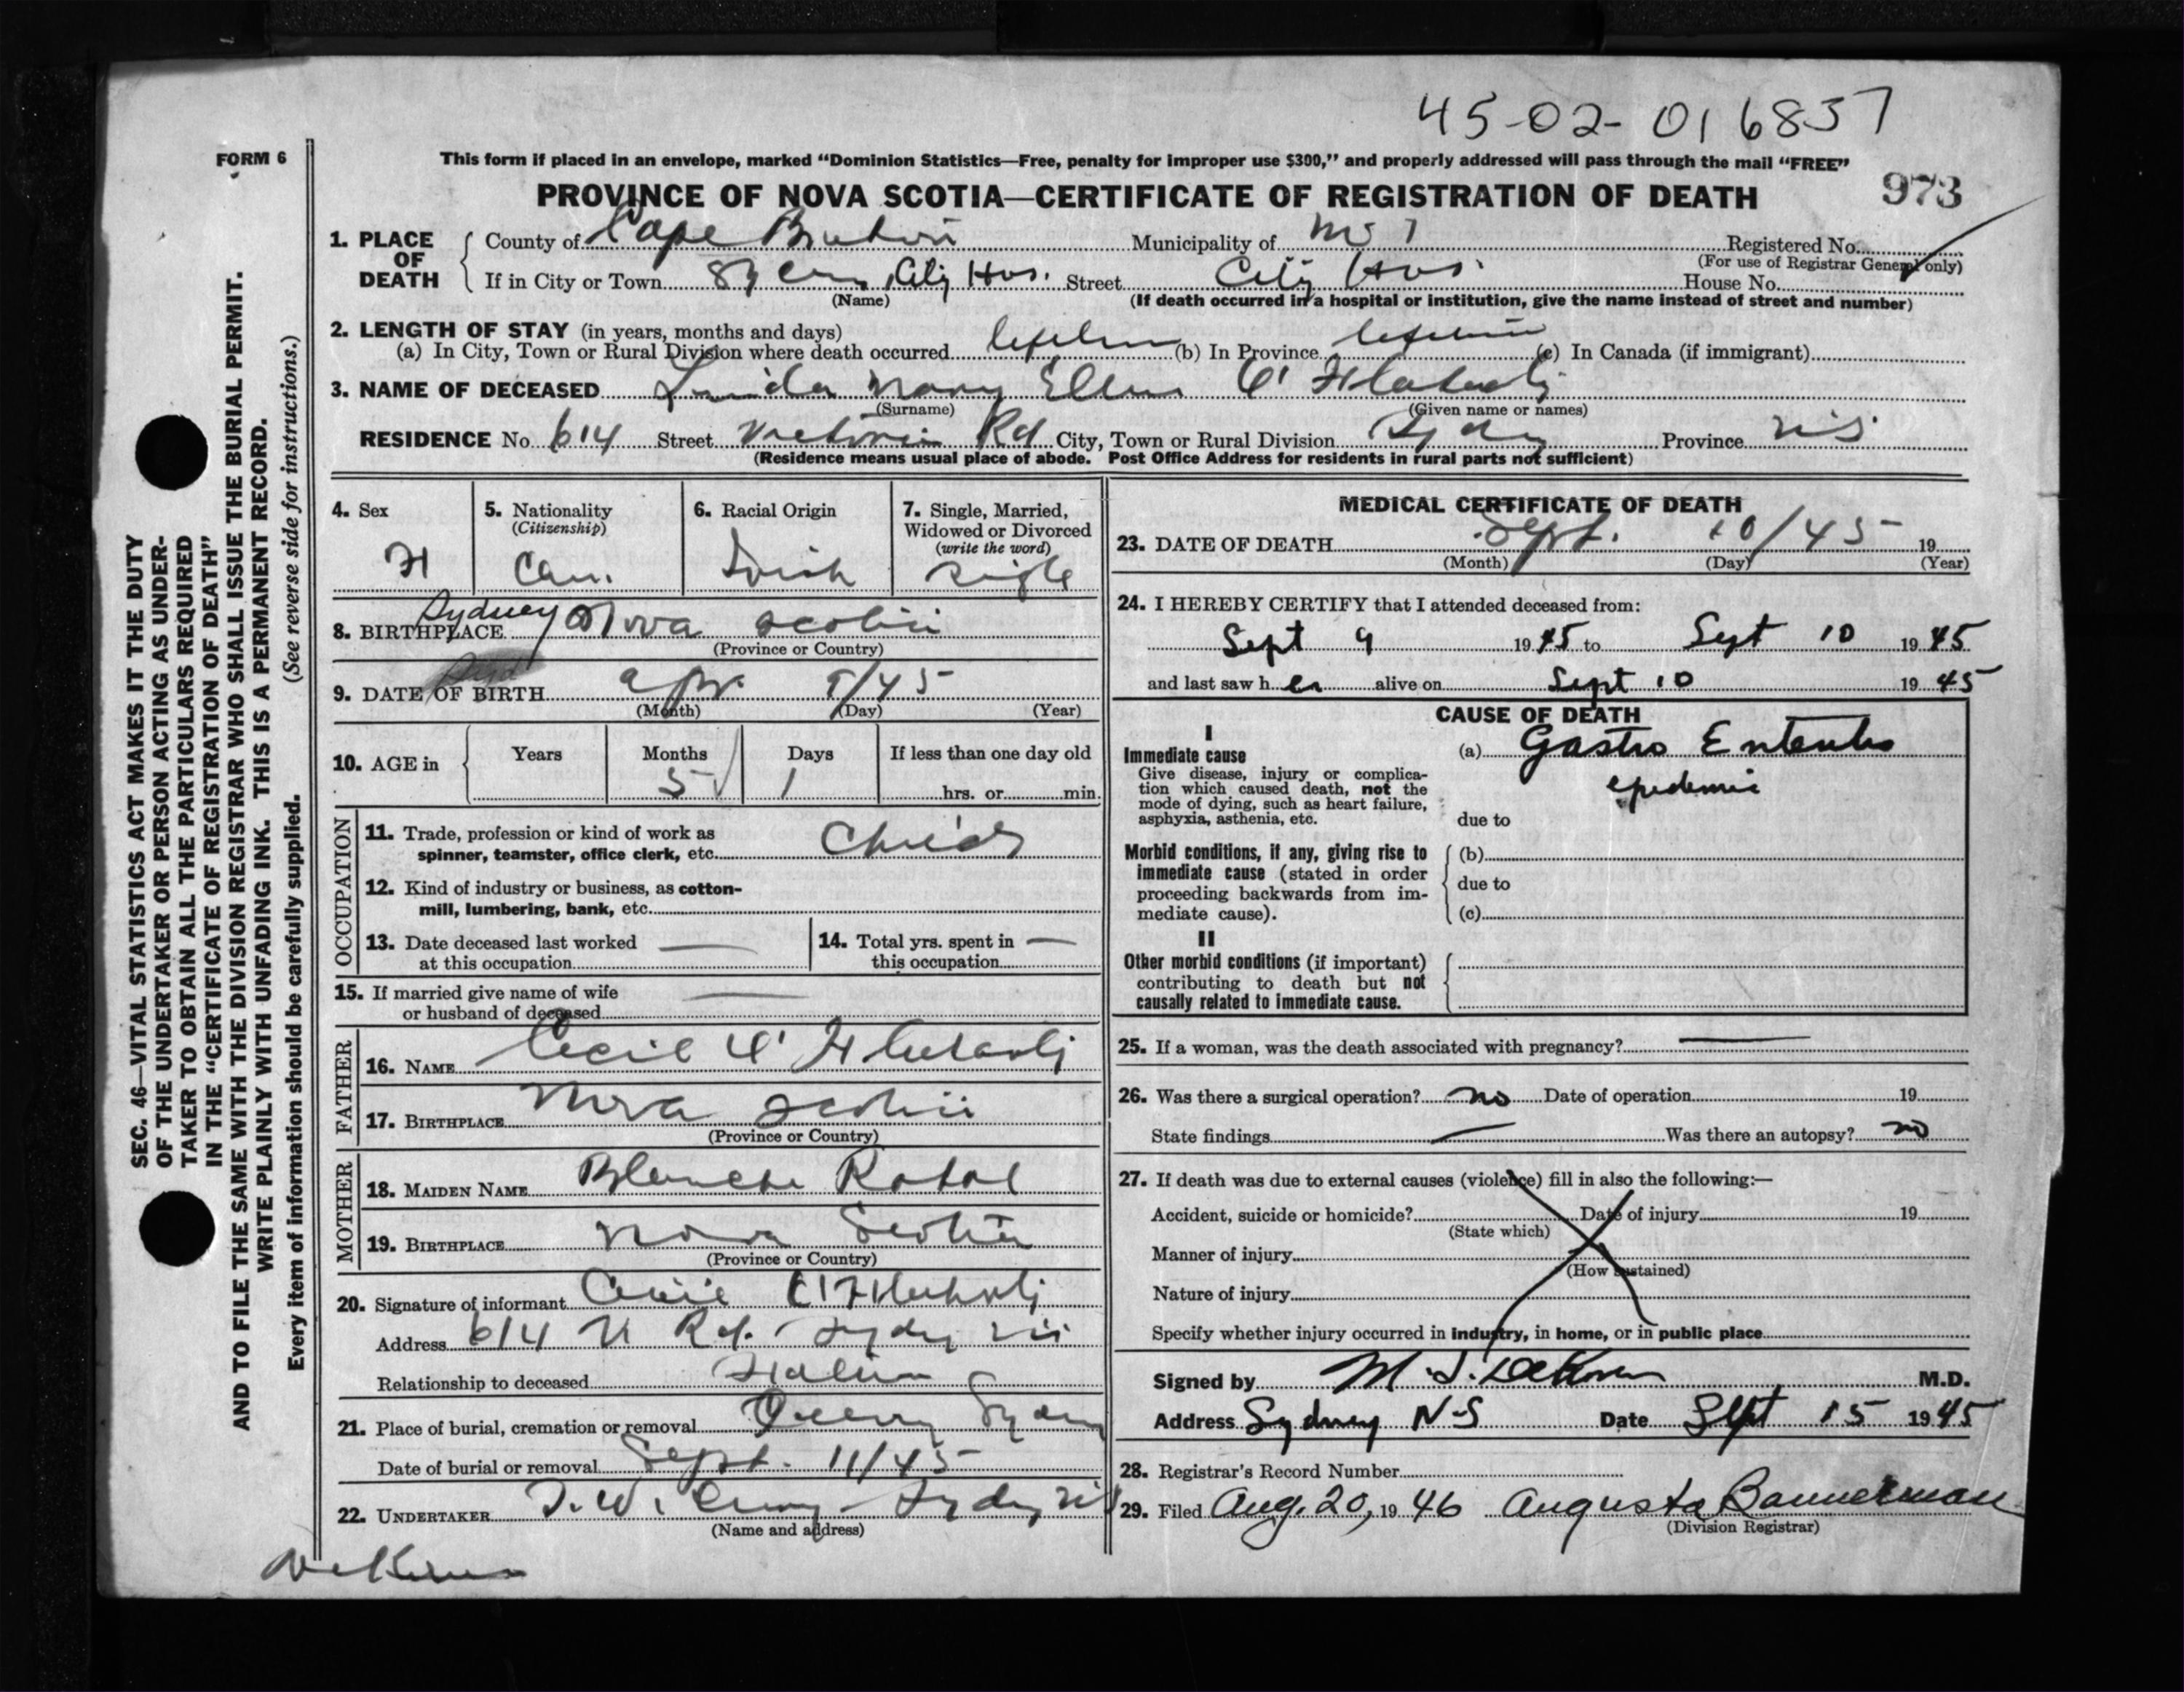 45-02-016837
FORM 6
This form if placed in an envelope, marked “Dominion Statistics—Free, penalty for improper use $300,” and properly addressed will pass through the mail “FREE”
PROVINCE OF NOVA SCOTIA—CERTIFICATE OF REGISTRATION OF DEATH 973
1. PLACE OF DEATH County of Cape Breton Municipality of Registered No.
(For use of Registrar General only)
If in City or Town City Hos. Street City Hos. House No.
(Name) (If death occurred in a hospital or institution, give the name instead of street and number)
2. LENGTH OF STAY (in years, months and days)
(a) In City, Town or Rural Division where death occurred lifetime (b) In Province lifetime (c) In Canada (if immigrant)
3. NAME OF DECEASED Linda Mary Ellen O'Flaherty
(Surname) (Given name or names)
RESIDENCE No 614 Street Victoria Rd City, Town or Rural Division Sydney Province N.S.
(Residence means usual place of abode. Post Office Address for residents in rural parts not sufficient)
4. Sex F
5. Nationality (Citizenship) Can.
6. Racial Origin Irish
7. Single, Married, Widowed or Divorced (write the word) Single
8. BIRTHPLACE Sydney Nova Scotia
(Province or Country)
9. DATE OF BIRTH Apr 9/45
(Month) (Day) (Year)
10. AGE in Years Months Days If less than one day old
5 1 hrs. or min.
OCCUPATION
11. Trade, profession or kind of work as spinner, teamster, office clerk, etc. Child
12. Kind of industry or business, as cotton-mill, lumbering, bank, etc.
13. Date deceased last worked at this occupation —
14. Total yrs. spent in this occupation —
15. If married give name of wife or husband of deceased —
FATHER
16. NAME Cecil O'Flaherty
17. BIRTHPLACE Nova Scotia
(Province or Country)
MOTHER
18. MAIDEN NAME Blanche
19. BIRTHPLACE Nova Scotia
(Province or Country)
20. Signature of informant Cecil O'Flaherty
Address 614 V Rd. Sydney N.S.
Relationship to deceased Father
21. Place of burial, cremation or removal Sydney
Date of burial or removal Sept. 11/45
22. UNDERTAKER T. W. Curry Sydney N.S.
(Name and address)
MEDICAL CERTIFICATE OF DEATH
23. DATE OF DEATH Sept. 10/45 19
(Month) (Day) (Year)
24. I HEREBY CERTIFY that I attended deceased from:
Sept 9 1945 to Sept 10 1945
and last saw her alive on Sept 10 1945
CAUSE OF DEATH
I
Immediate cause (a) Gastro Enteritis
epidemic
Give disease, injury or complication which caused death, not the mode of dying, such as heart failure, asphyxia, asthenia, etc.
due to
Morbid conditions, if any, giving rise to immediate cause (stated in order proceeding backwards from immediate cause).
(b)
due to
(c)
II
Other morbid conditions (if important) contributing to death but not causally related to immediate cause.
25. If a woman, was the death associated with pregnancy? —
26. Was there a surgical operation? no Date of operation 19
State findings — Was there an autopsy? no
27. If death was due to external causes (violence) fill in also the following:—
Accident, suicide or homicide? Date of injury 19
(State which)
Manner of injury
(How sustained)
Nature of injury
Specify whether injury occurred in industry, in home, or in public place
Signed by M.D.
Address Sydney N-S Date Sept 15 1945
28. Registrar's Record Number
29. Filed Aug. 20, 1946 Augusta Bannerman
(Division Registrar)
SEC. 46—VITAL STATISTICS ACT MAKES IT THE DUTY
OF THE UNDERTAKER OR PERSON ACTING AS UNDER-
TAKER TO OBTAIN ALL THE PARTICULARS REQUIRED
IN THE “CERTIFICATE OF REGISTRATION OF DEATH”
AND TO FILE THE SAME WITH THE DIVISION REGISTRAR WHO SHALL ISSUE THE BURIAL PERMIT.
WRITE PLAINLY WITH UNFADING INK. THIS IS A PERMANENT RECORD.
Every item of information should be carefully supplied. (See reverse side for instructions.)